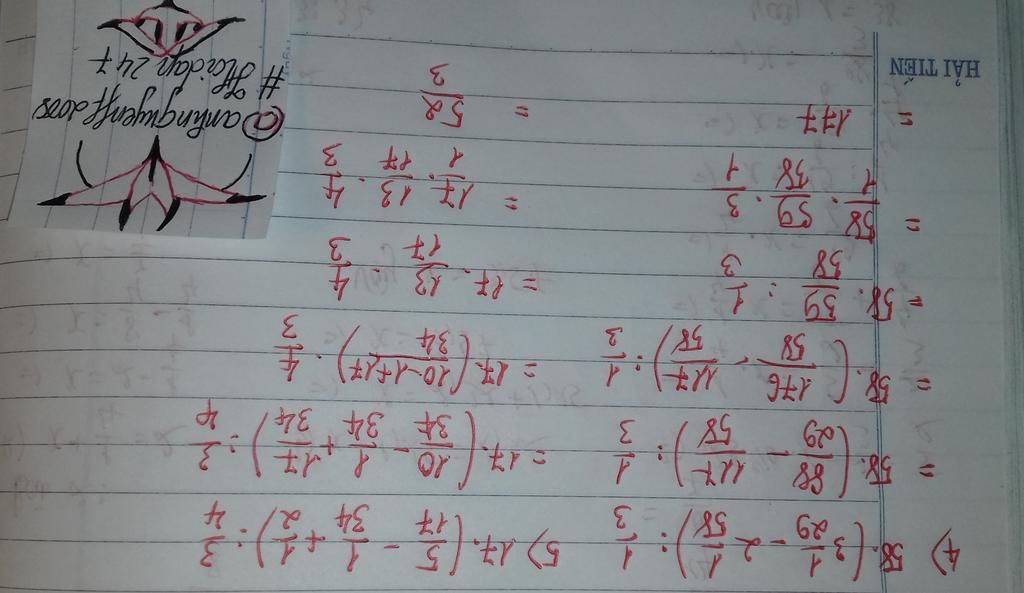 4) 58.(3 1/29 - 2 1/58) : 1/3
= 58.(88/29 - 117/58) : 1/3
= 58.(176/58 - 117/58) : 1/3
= 58. 59/58 : 1/3
= 58/1 . 59/58 . 3/1
= 177
5) 17.(5/17 - 1/34 + 1/2) : 3/4
= 17.(10/34 - 1/34 + 17/34) : 3/4
= 17.((10-1+17)/34) . 4/3
= 17. 13/17 . 4/3
= 17/1 . 13/17 . 4/3
= 52/3
HẢI TIẾN
@anhnguyenff2008
# Hoidap 247